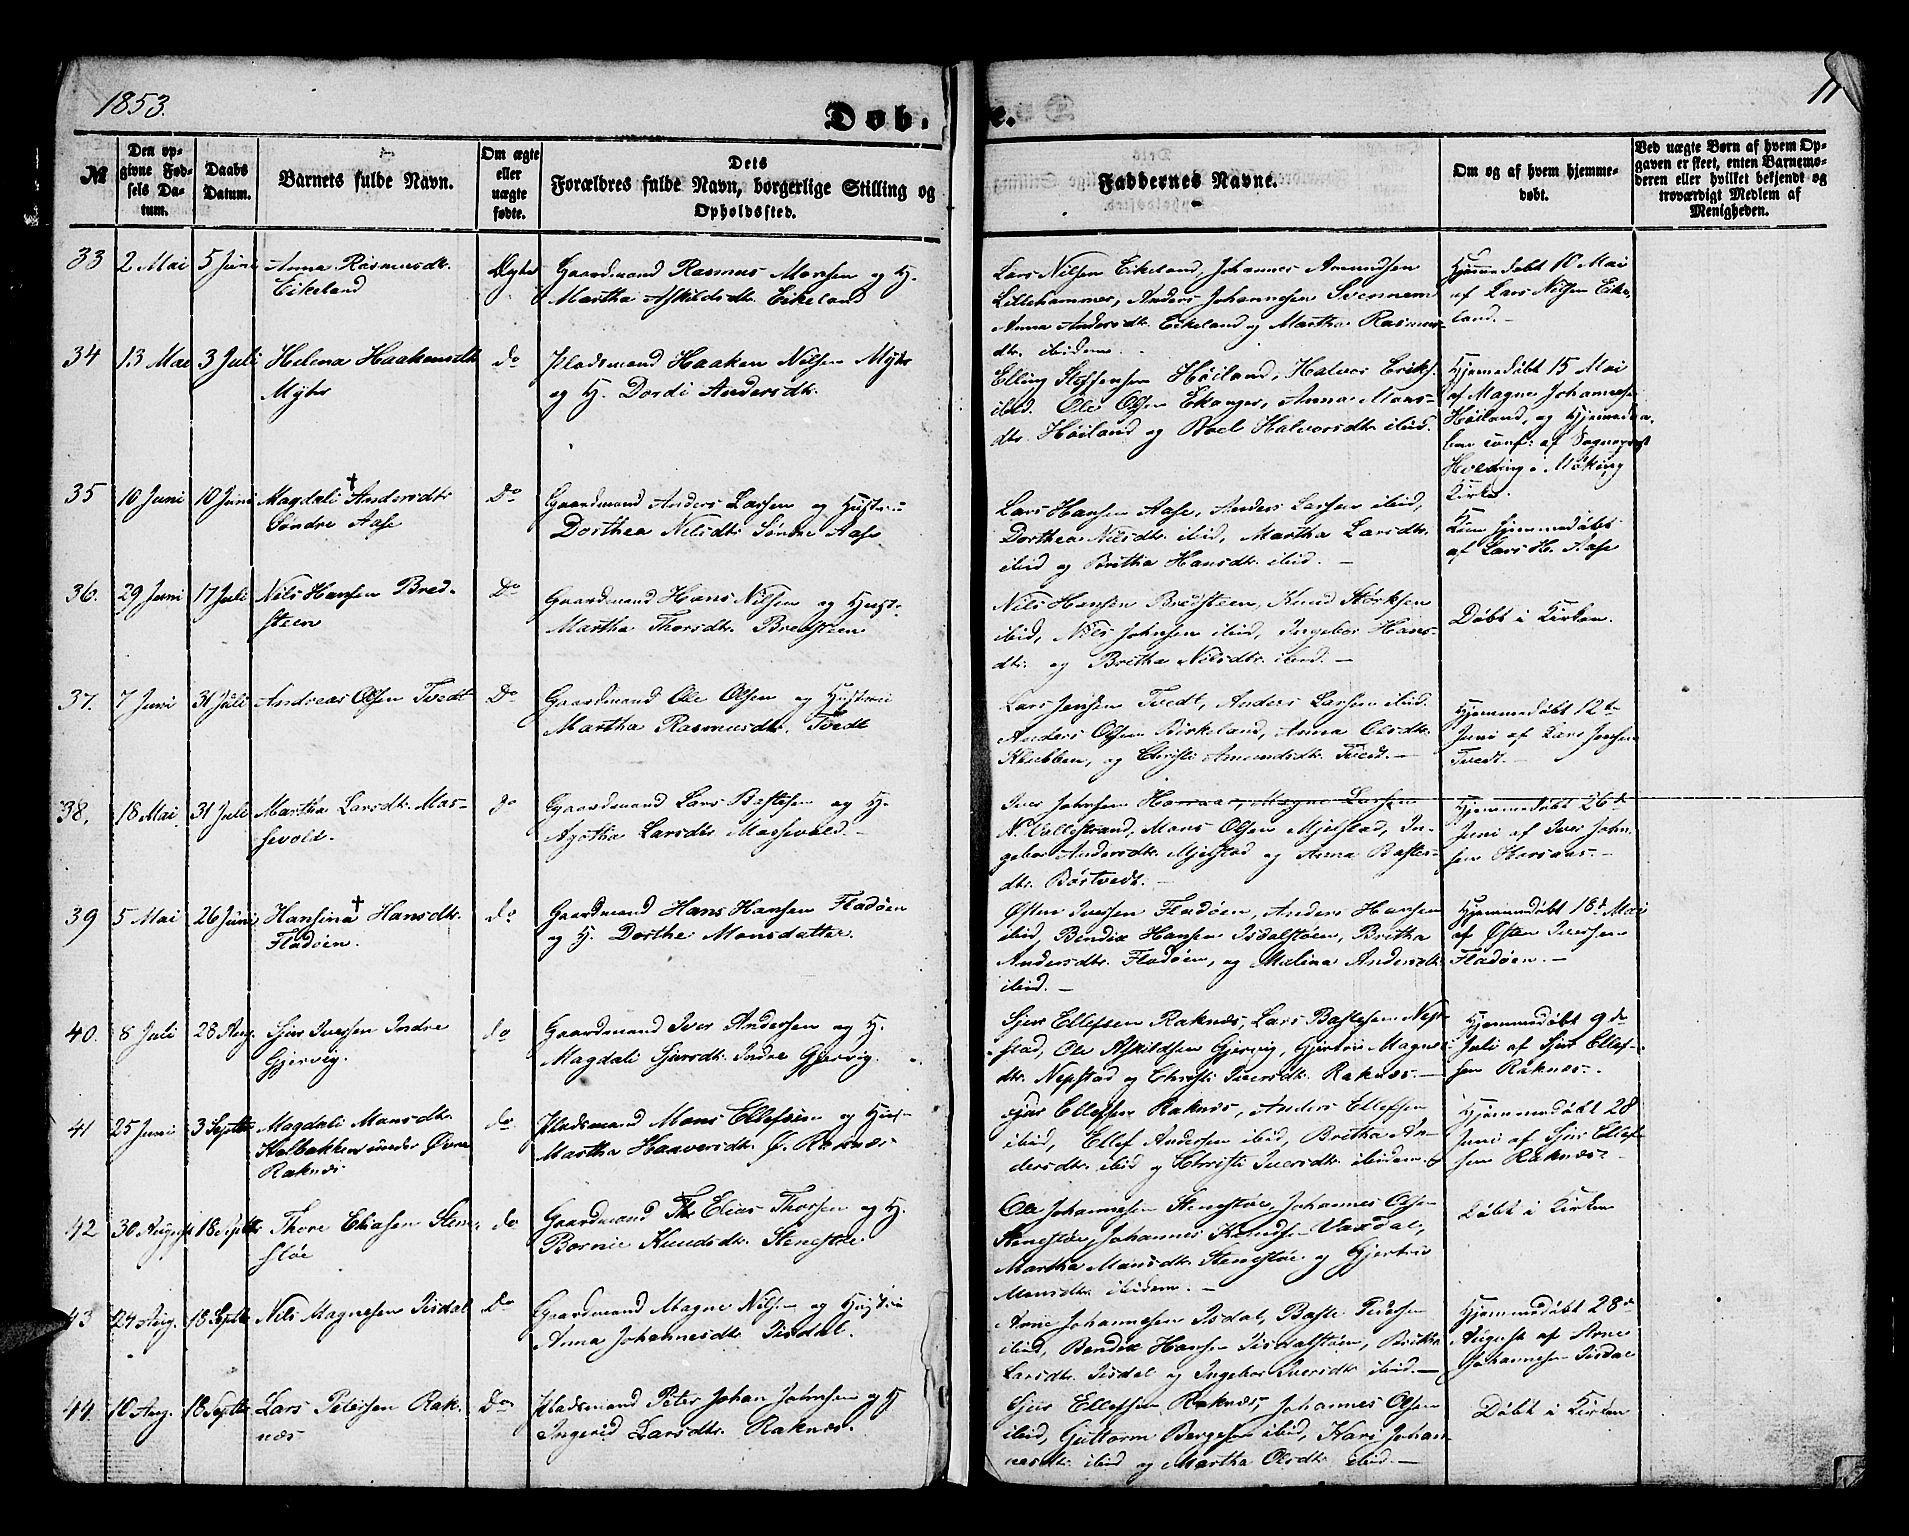 1853.
Døb-
e.
11
№
Den op-
givne Fød-
sels Da-
tum.
Daabs
Datum.
Barnets fulde Navn.
Om ægte
eller
uægte
fødte.
Dets
Forældres fulde Navn, borgerlige Stilling og
Opholdssted.
Faddernes Navne.
Om og af hvem hjemme-
døbt.
Ved uægte Børn af hvem Op-
gaven er skeet, enten Barnemo-
deren eller hvilket bekjendt og
troværdigt Medlem af
Menigheden.
33 2 Mai 5 Juni Anna Rasmusdt.
Eikeland
Ægte
Gaardmand Rasmus Monsen og H.
Martha Askildsdt. Eikeland
Lars Nilsen Eikeland, Johannes Amundsen
Lillehammer, Anders Johannesen
Anna Andersdt. Eikeland og Martha Rasmus-
dt. ibidem. -
Hjemmedøbt 10 Mai
af Lars Nilsen Eike-
land. -
34 13 Mai 3 Juli Helena Haakensdt.
Myhr
do
Pladsmand Haaken Nilsen Myhr
og H. Dordi Andersdt.
Elling Steffensen Høiland, Halvor Eriks.
ibid. Ole Olsen Ekanger, Anna Mons-
dt. Høiland og Boel Halvorsdt. ibid.
Hjemmedøbt 15 Mai
af Magne Johannesen
Høiland, og Hjemmedaa-
ben conf: af Sognepræst
i
Kirke.
35 10 Juni 10 Juni Magdali † Andersdt.
Søndre Aase
Do
Gaardmand Anders Larsen og Hustru
Dorthea Nilsdt. Søndre Aase
Lars Hansen Aase, Anders Larsen ibid,
Dorthea Nilsdt. ibid, Martha Larsdt.
ibid og Britha Hansdt. ibid. -
Kun hjemmedøbt
af Lars H. Aase
36. 29 Juni 17 Juli Nils Hansen Bred-
steen
Do
Gaardmand Hans Nilsen og Hust.
Martha Thorsdt. Bredsteen
Nils Hansen Bredsteen, Knud Størksen
ibid, Nils Johnsen ibid, Ingebor Hans-
dt. og Britha Nilsdt. ibid. -
Døbt i Kirken.
37. 7 Juni 31 Juli Andreas Olsen Tvedt
Do
Gaardmand Ole Olsen og Hustrue
Martha Rasmusdt. Tvedt
Lars Jensen Tvedt, Anders Larsen ibid.
Anders Olsen Birkeland, Anna Olsdt.
Klubben, og Christi Amundsdt. Tvedt. -
Hjemmedøbt 12te
Juni af Lars Jensen
Tvedt.
38. 18 Mai 31 Juli Martha Larsdt. Mas-
sevold.
do
Gaardmand Lars Bastesen og H.
Agatha Larsdt. Massevold -
Iver Johnsen Magne Larsen
N. Vallestrand, Mons Olsen Mjelstad, In-
gebor Andersdt. Mjelstad og Anna Bastes-
dt. Børtvedt. -
Hjemmedøbt 26de
Juni af Iver John-
sen
39 5 Mai 26 Juni Hansina † Hansdt.
Fladøen.
do
Gaardmand Hans Hansen Fladøen
og H. Dorthe Monsdatter.
Østen Iversen Fladøen, Anders Hansen
ibid, Bendix Hansen Isdalstøen, Britha
Andersdt. Fladøen, og Malina Andersdt.
ibid. -
Hjemmedøbt 18de Mai
af Østen Iversen
Fladøen. -
40. 8 Juli 28 Aug. Sjur Iversen Indre
Gjervig.
do
Gaardmand Iver Andersen og H.
Magdali Sjursdt. Indre Gjervig.
Sjur Ellefsen Raknæs, Lars Bastesen Nep-
stad, Ole Askildsen Gjervig, Gjertrü Magne-
dt. Nepstad og Christi Iversdt. Raknæs. -
Hjemmedøbt 9de
Juli af Sjur Ellef-
sen Raknæs.
41 25 Juni 3 Septbr Magdali Monsdt.
Kolbakken under Øvre
Raknæs
do
Pladsmand Mons Ellefsen og Hus-
Martha Haaversdt. Ø. Raknæs
Sjur Ellefsen Raknæs, Anders Ellefsen
ibid, Ellef Andersen ibid, Britha An-
dersdt. ibid og Christi Iversdt. ibidem.
Hjemmedøbt 28
Juni af Sjur Ellef-
sen Raknæs.
42 30 August 18 Septbr Thore Eliasen Sten-
støe
do
Gaardmand Elias Thorsen og H.
Bornie Knudsdt. Stenestøe.
Ole Johannesen Stenestøe, Johannes Olsen
Stenestøe, Johannes Knudsen Vaxdal,
Martha Monsdt. Stenestøe og Gjertrü
Monsdt. ibidem. -
Døbt i Kirken
43 24 Aug. 18 Septbr Nils Magnesen Iisdal
Do
Gaardmand Magne Nilsen og Hustrue
Anna Johannesdt. Iisdal.
Arne Johannesen Isdal, Baste Pedersen
ibid, Bendix Hansen Iisdalstøen, Britha
Larsdt. Iisdal og Ingebor Iversdt. ibid. -
Hjemmedøbt 28de
August af Arne
Johannesen Iisdal
44. 10 Aug. 18 Septbr Lars Petersen Rak-
næs
Do
Pladsmand Peter Johan Johnsen og H
Ingerid Larsdt. Raknæs.
Sjur Ellefsen Raknæs, Johannes Olsen
ibid, Guttorm Bergesen ibid, Kari Johan-
nesdt. ibid og Martha Olsdt. ibid. -
Døbt i Kirken